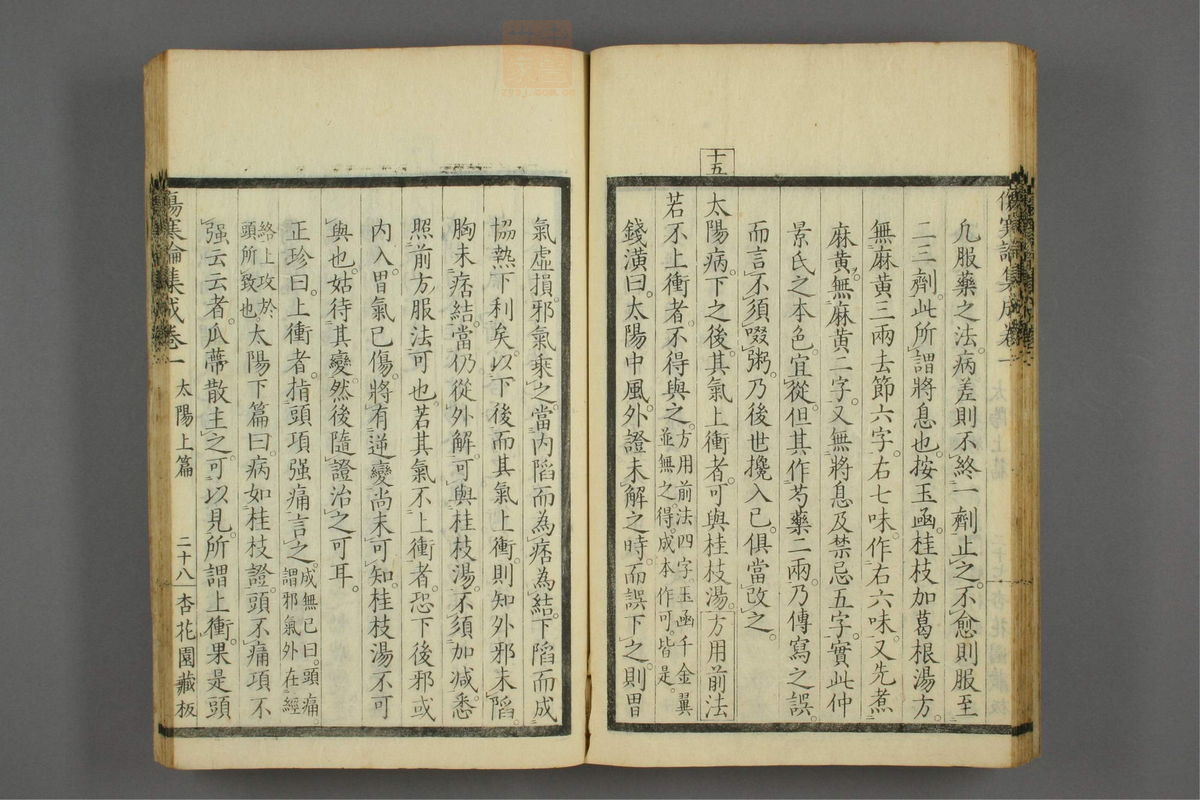 十五
凡服藥之法。病差則不終一劑止之。不愈則服至
二三劑。此所謂將息也。按玉函。桂枝加葛根湯方。
無麻黃三兩去節六字。右七味。作右六味。又先煮
麻黃。無麻黃二字。又無將息及禁忌五字。實此仲
景氏之本色。宜從。但其作芍藥二兩。乃傳寫之誤。
而言不須啜粥。乃後世攙入已。俱當改之。
太陽病。下之後。其氣上衝者。可與桂枝湯。方用前法
若不上衝者。不得與之。方用前法四字。玉函千金翼
並無之。得。成本作可。皆是。
錢潢曰。太陽中風。外證未解之時。而誤下之。則胃
傷寒論集成卷一
氣虛損。邪氣乘之。當內陷而為痞為結。下陷而成
協熱下利矣。以下後而其氣上衝。則知外邪未陷。
胸未痞結。當仍從外解。可與桂枝湯。不須加減。悉
照前方服法可也。若其氣不上衝者。恐下後邪或
內入。胃氣已傷。將有逆變尚未可知。桂枝湯不可
與也。姑待其變。然後隨證治之可耳。
正珍曰。上衝者。指頭項强痛言之。成無已曰。頭痛。
謂邪氣外在經
絡。上攻於
頭所致也。太陽下篇曰。病如桂枝證。頭不痛項不
强云云者。瓜蔕散主之。可以見。所謂上衝。果是頭
傷寒論集成卷一 太陽上篇 二十八 杏花園藏板